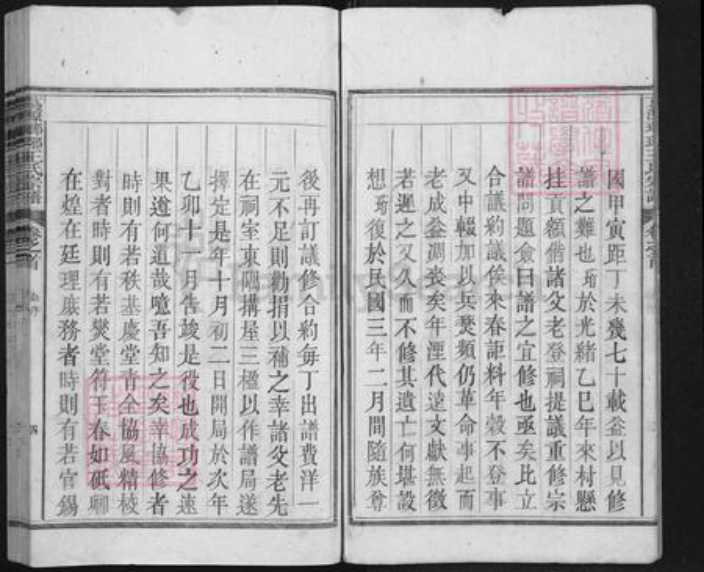 國甲寅距丁未幾七十載益以見修
譜之難也瑜於光緒乙巳年來村懸
挂貢額偕諸父老登祠提議重修宗
譜問題僉曰譜之宜修也亟矣比立
合議約議俟來春詎料年穀不登事
又中輟加以兵燹頻仍革命事起而
老成益凋喪矣年湮代遠文獻無徵
若遲之又久而不修其遺亡何堪設
想瑜復於民國三年二月間隨族尊
後再訂議修合約每丁出譜費洋一
元不足則勸捐以補之幸諸父老先
在祠室東隅搆屋三楹以作譜局遂
擇定是年十月初二日開局於次年
乙卯十一月告竣是役也成功之速
果遵何道哉噫吾知之矣幸協修者
時則有若秩基慶堂青全協風精棱
對者時則有若燮堂符玉春如砥卿
在煌在廷理庶務者時則有若官錫
王氏宗譜
卷之首
四